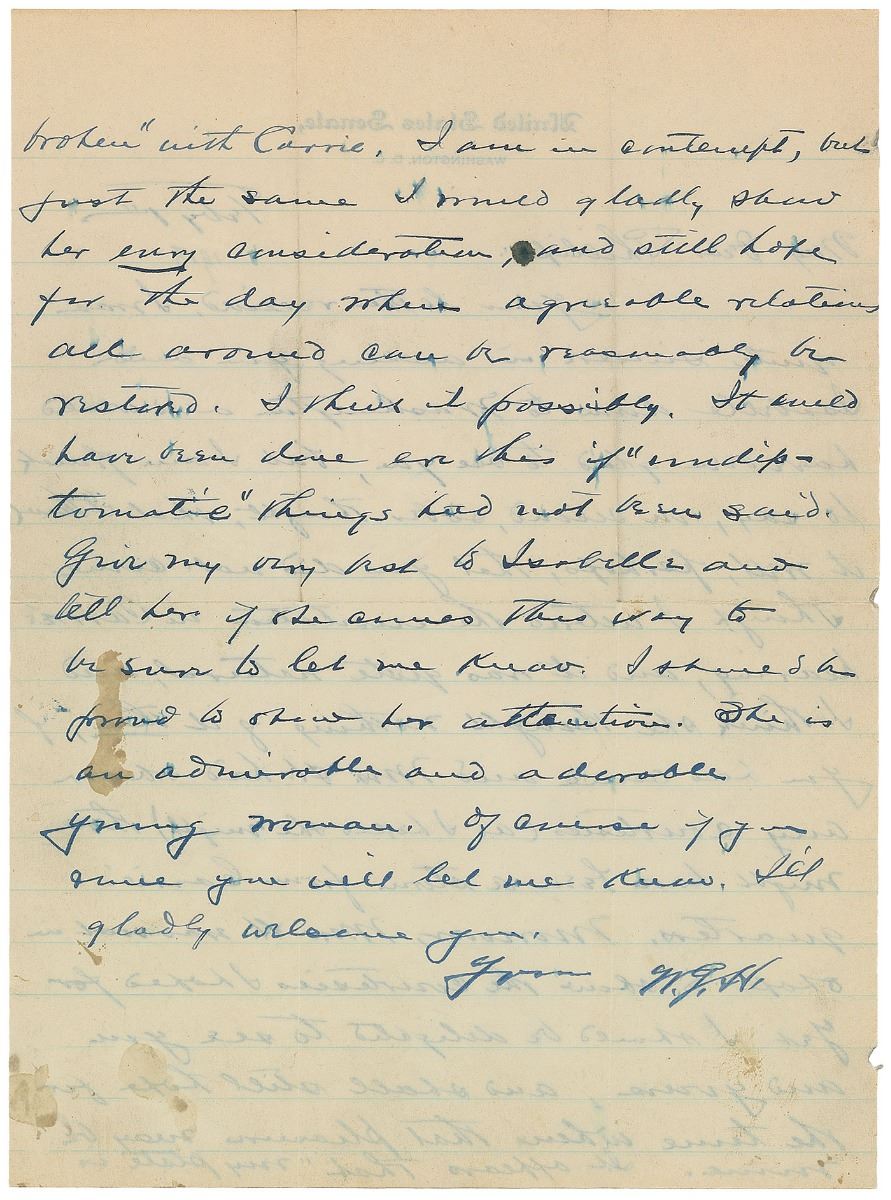 broken" with Carrie. I am in contempt, but
just the same I would gladly show
her every consideration, and still hope
for the day when agreeable relations
all around can be reasonably be
restored. I think it possibly. It could
have been done ere this if "undip-
lomatic" things had not been said.
Give my very best to Isabelle and
tell her if she comes this way to
be sure to let me know. I should be
proud to show her attention. She is
an admirable and adorable
young woman. Of course if you
come you will let me know. I'll
gladly welcome you.
Yours W.G.H.